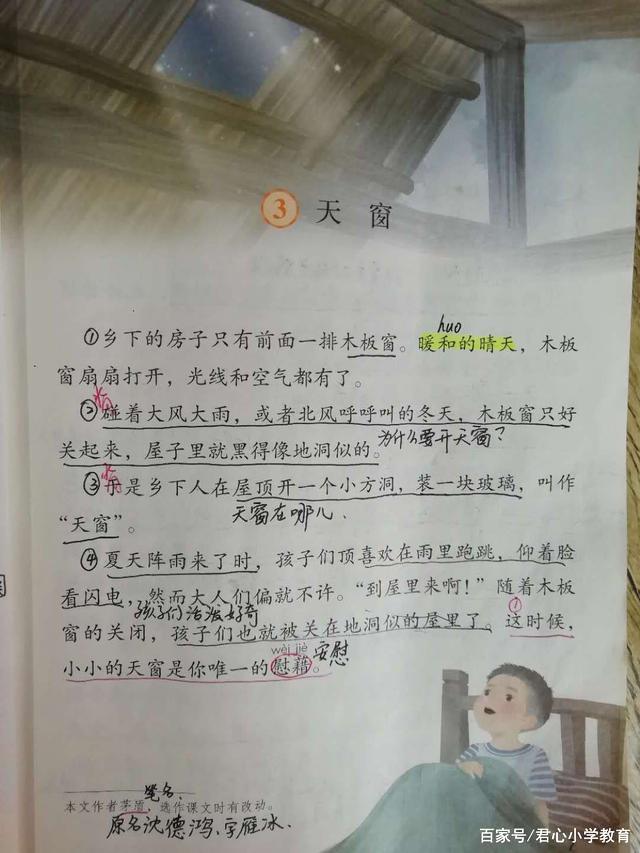 3 天窗
huo
①乡下的房子只有前面一排木板窗。暖和的晴天，木板
窗扇扇打开，光线和空气都有了。
②碰着大风大雨，或者北风呼呼叫的冬天，木板窗只好
关起来，屋子里就黑得像地洞似的。为什么要开天窗？
③于是乡下人在屋顶开一个小方洞，装一块玻璃，叫作
“天窗”。 天窗在哪儿.
④夏天阵雨来了时，孩子们顶喜欢在雨里跑跳，仰着脸
看闪电，然而大人们偏就不许。“到屋里来啊！”随着木板
孩子们活泼好奇 ①
窗的关闭，孩子们也就被关在地洞似的屋里了。这时候，
wèi jiè 安慰
小小的天窗是你唯一的慰藉。
笔名.
本文作者茅盾，选作课文时有改动。
原名沈德鸿,字雁冰.
百家号/君心小学教育